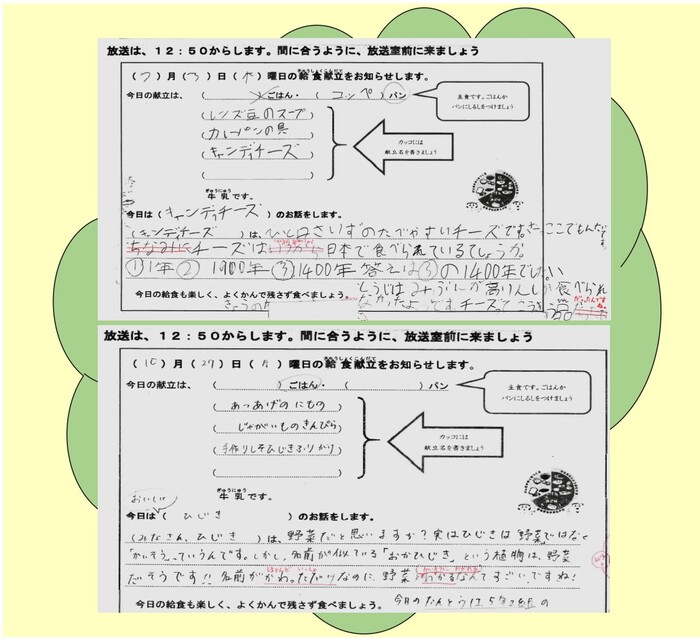 放送は、12：50からします。間に合うように、放送室前に来ましょう
（7）月（3）日（木）曜日の給食献立をお知らせします。
きゅうしょくこんだて
今日の献立は、（　　　）ごはん・（コッペ）パン
主食です。ごはんか
パンにしるしをつけましょう
（レンズ豆のスープ）
（カレーパンの具）
（キャンディチーズ）
カッコには
献立名を書きましょう
ぎゅうにゅう
牛乳です。
今日は（キャンディチーズ）のお話をします。
（キャンディチーズ）は、ひと口さいずのたべやすいチーズです。さーここでもんだい
ちなみにチーズは 日本で食べられているでしょうか。
①1年 ② 1900年 ③1400年 答えは③の1400年でした。
今日の給食も楽しく、よくかんで残さず食べましょう。
放送は、12：50からします。間に合うように、放送室前に来ましょう
（10）月（27）日（月）曜日の給食献立をお知らせします。
きゅうしょくこんだて
今日の献立は、（　　　）ごはん・（　　　）パン
主食です。ごはんか
パンにしるしをつけましょう
（あつあげのにもの）
（じゃがいものきんぴら）
（手作りしそひじきふりかけ）
カッコには
献立名を書きましょう
おいしい
ぎゅうにゅう
牛乳です。
今日は（ひじき）のお話をします。
（みなさん、ひじき）は、野菜だと思いますか？実はひじきは「野菜」ではなく
「かいそう」っていうんです。しかし、名前が似ている「おかひじき」という植物は、野菜
だそうです!! 名前が なのに、野菜 なんてすごいですね！
今日の給食も楽しく、よくかんで残さず食べましょう。